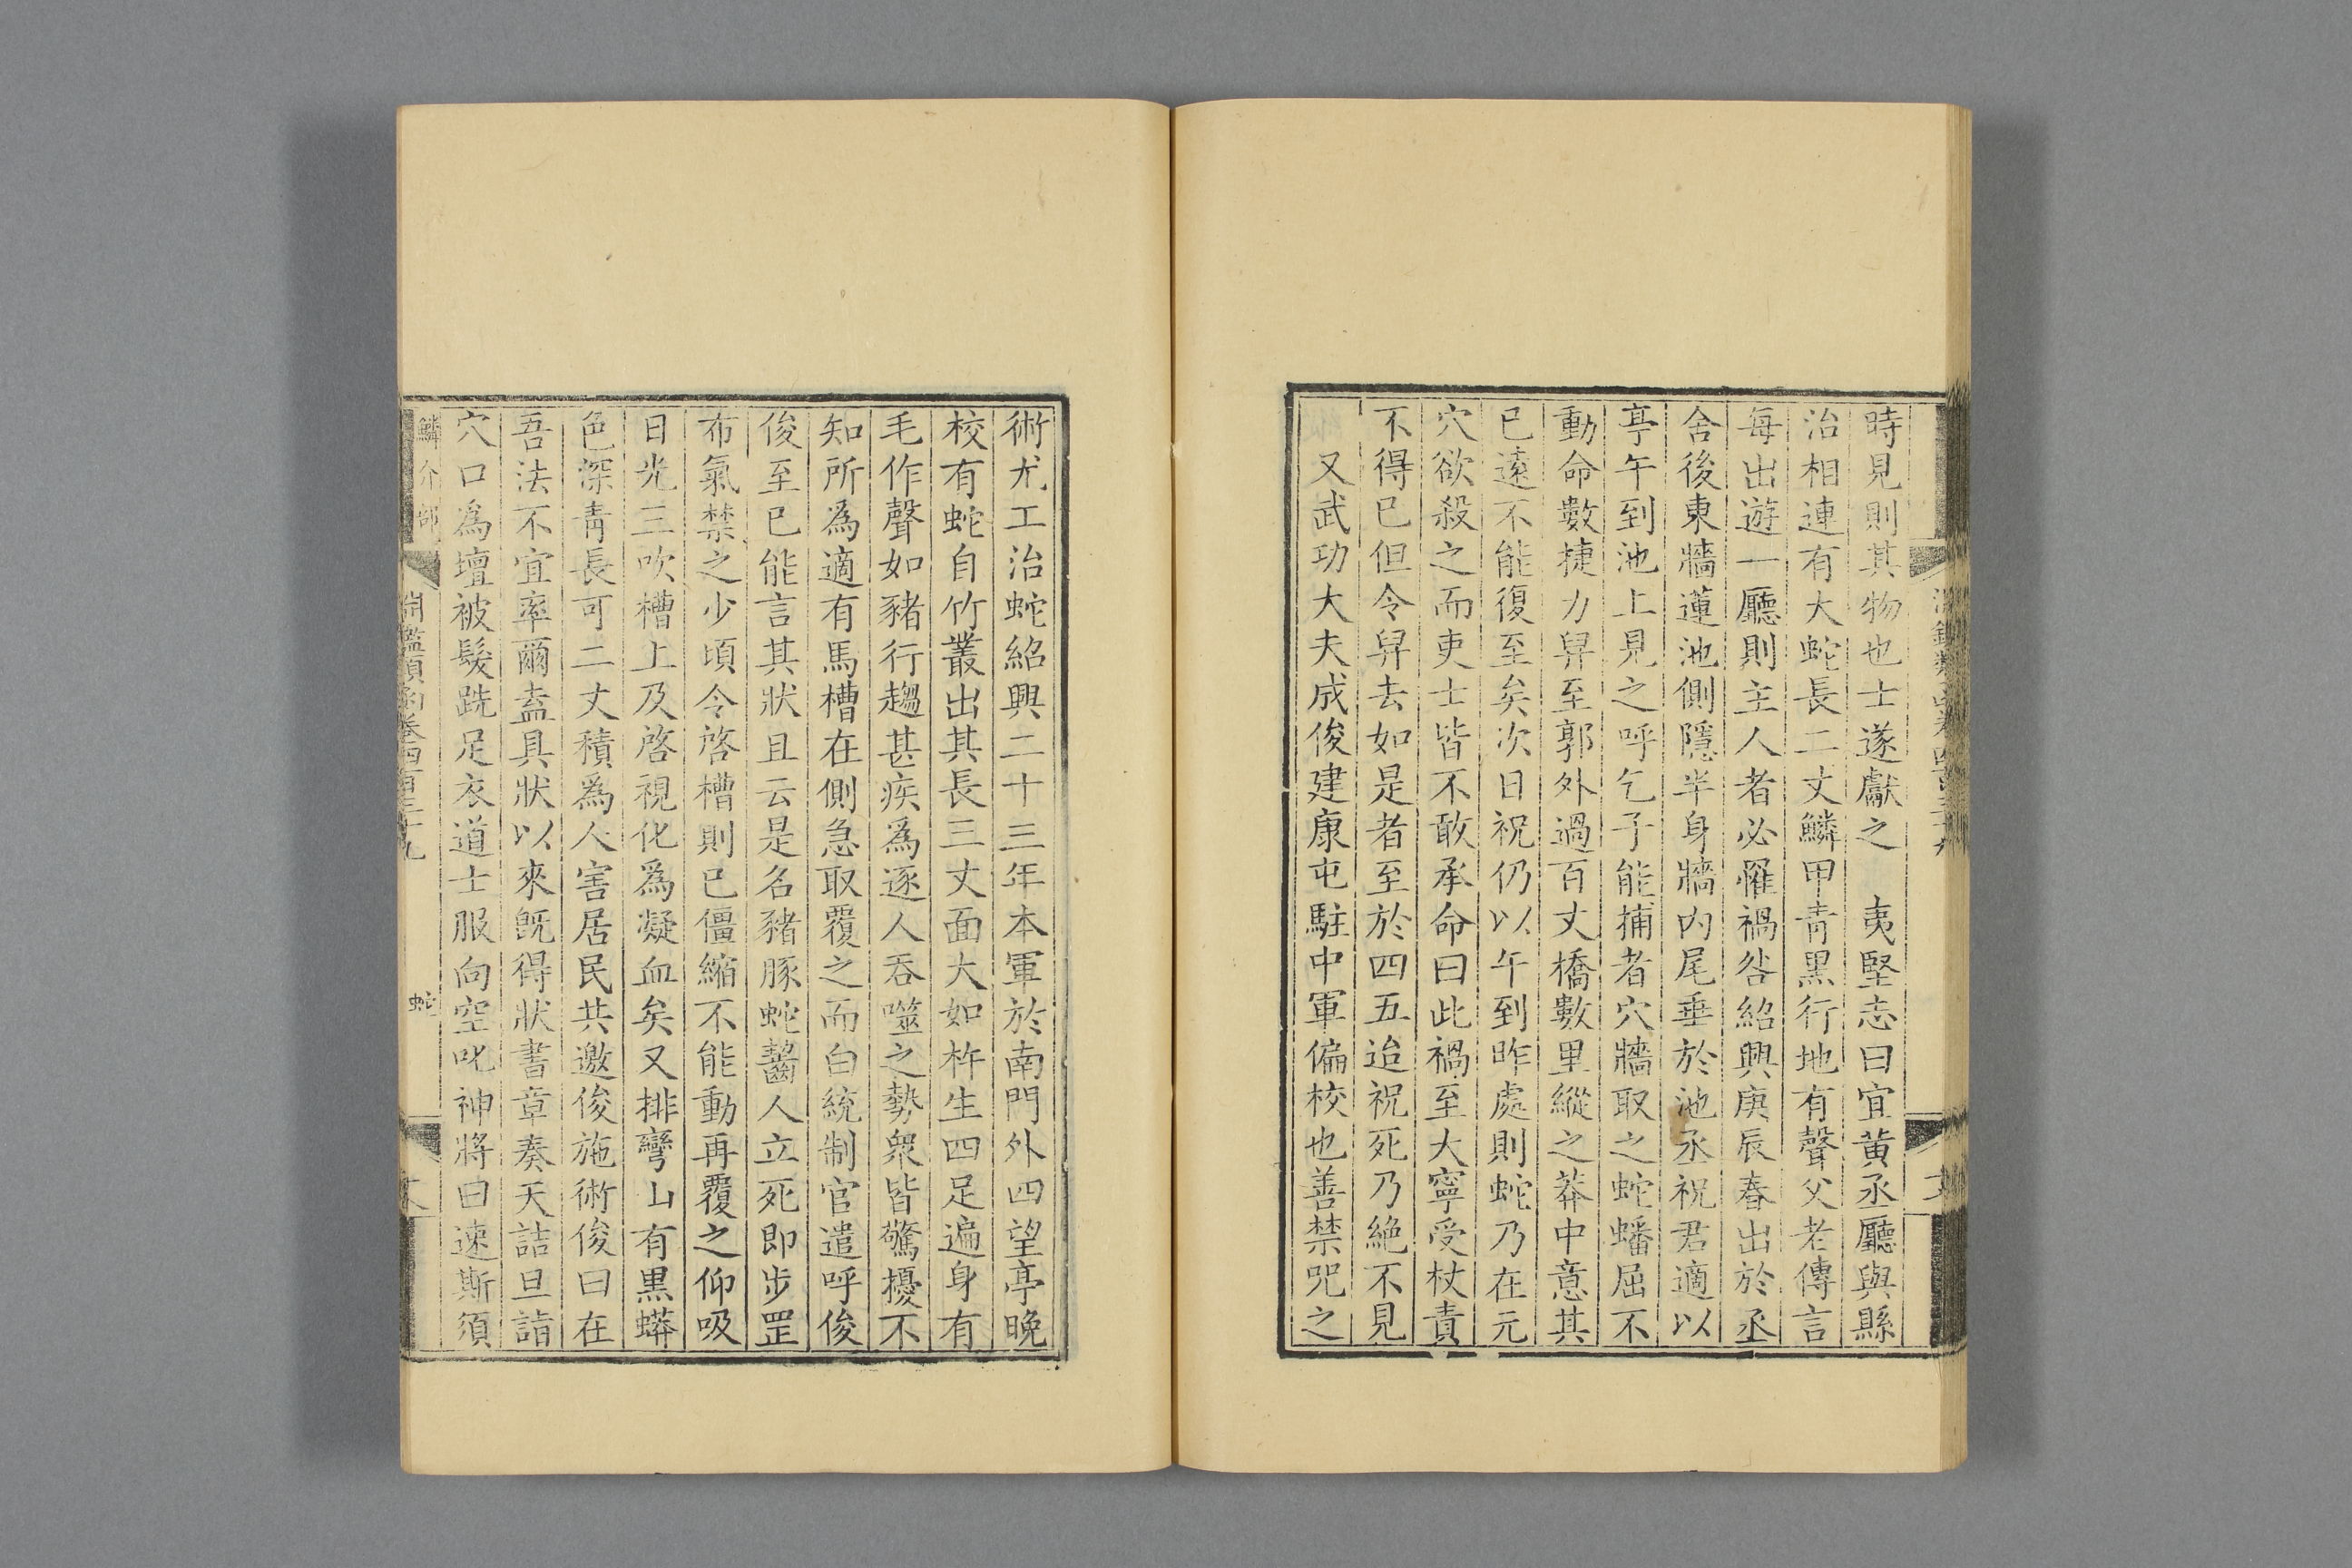 時見則其物也士遂獻之　夷堅志曰宜黄丞廳與縣
治相連有大蛇長二丈鱗甲青黑行地有聲父老傳言
每出遊一廳則主人者必罹禍咎紹興庚辰春出於丞
舍後東牆蓮池側隱半身牆内尾垂於池丞祝君適以
亭午到池上見之呼乞子能捕者穴牆取之蛇蟠屈不
動命數捷力舁至郭外過百丈橋數里縱之莽中意其
已遠不能復至矣次日祝仍以午到昨處則蛇乃在元
穴欲殺之而吏士皆不敢承命曰此禍至大寧受杖責
不得已但令舁去如是者至於四五迨祝死乃絶不見
又武功大夫成俊建康屯駐中軍偏校也善禁咒之
術尤工治蛇紹興二十三年本軍於南門外四望亭晚
校有蛇自竹叢出其長三丈面大如杵生四足遍身有
毛作聲如豬行趨甚疾爲逐人吞噬之勢衆皆驚擾不
知所爲適有馬槽在側急取覆之而白統制官遣呼俊
俊至已能言其狀且云是名豬豚蛇齧人立死即步罡
布氣禁之少頃令啓槽則已僵縮不能動再覆之仰吸
日光三吹槽上及啓視化爲凝血矣又排彎山有黑蟒
色深青長可二丈積爲人害居民共邀俊施術俊曰在
吾法不宜率爾盍具狀以來旣得狀書章奏天詰旦詣
穴口爲壇被髮跣足衣道士服向空叱神將曰速斯須
鱗介部　淵鑑類函卷四百三十九　蛇